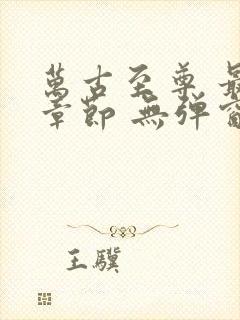 萬古至尊 最
章節 無彈窗
王驥